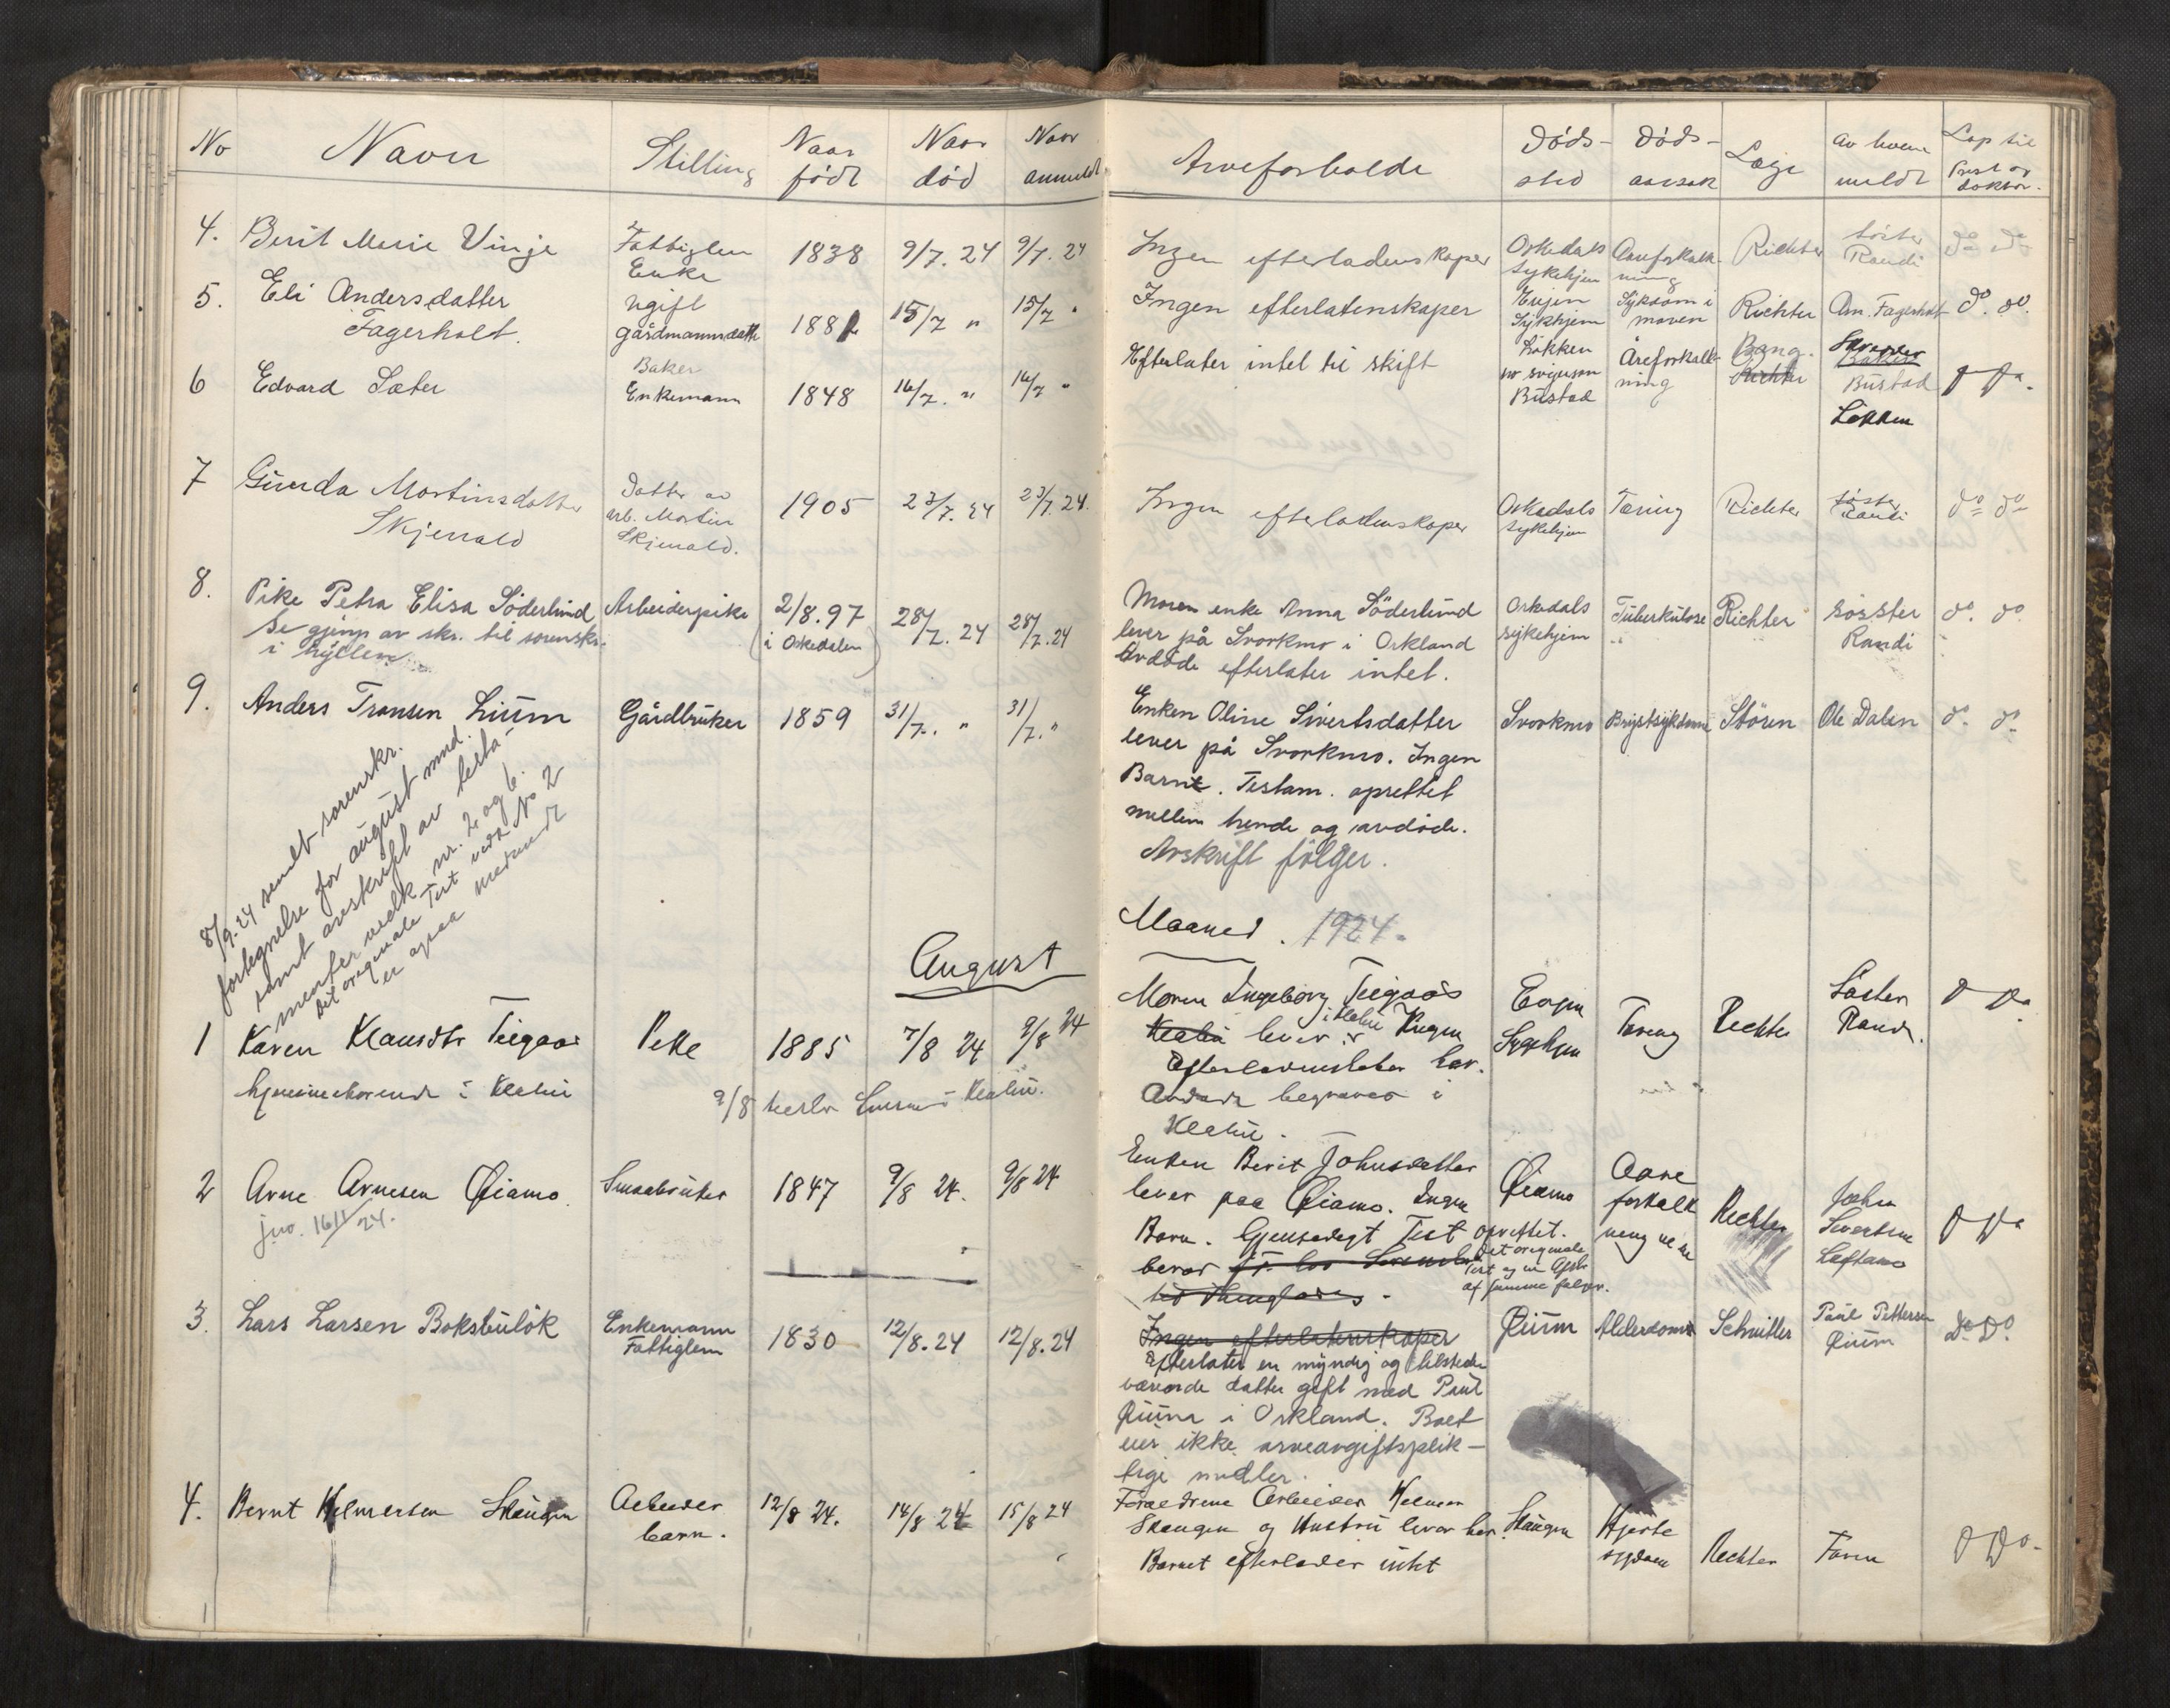 No Navn Stilling Naar født Naar død Naar anmeldt Arveforholde Døds-sted Døds-aarsak Læge Av hvem meldt Lap til Prest og doktor.
4. Berit Marie Vinje Fattiglem Enke 1838 9/7. 24 9/7. 24 Ingen efterladenskaper Orkedals sykehjem Aareforkalkning Richter søster Randi do do
5. Eli Andersdatter Fagerholt. Ugift gårdmannsdatter 1881 15/7 " 15/7 " Ingen efterlatenskaper Evjen Sykhjem Sykdom i maven Richter An. Fagerholt do. do.
6 Edvard Sæter Baker Enkemann 1848 16/7. " 16/7 " Efterlater intet til skift Løkken Bustad Åreforkalkning Bang. Richter Baker Bustad Løkken
7 Gunda Martinsdatter Skjenald Datter av arb. Martin Skjenald. 1905 23/7. 24 23/7. 24. Ingen efterladenskaper Orkedals sykehjem Tæring Richter søster Randi do do
8. Pike Petra Elisa Söderlund Arbeiderpike 2/8.97 (i Orkedalen) 28/7. 24 28/7.24 Orkedals sykehjem Tuberkulose Richter Søsster Randi do. do.
Se gjenp av skr. til sorenskr. i hyllen
Moren enke Anna Söderlund
lever på Svorkmo i Orkland
Avdøde efterlater intet.
9. Anders Tronsen Lium Gårdbruker 1859 31/7. " 31/7. " Svorkmo Brystsykdom Stören Ole Dalen do. do.
Enken Oline Sivertsdatter
lever på Svorkmo. Ingen
Barn. Testam. oprettet
mellem hende og avdøde.
Avskrift følger.
8/9.24 sendt sorenskr.
fortegnelse for august mnd.
samt avskrift av testa-
menter vedk. nr. 2 og 6.
Det originale Test vedk No 2
er ogsaa medsendt
August Maaned. 1924.
1 Karen Klausdtr Teigaas Pike 1885 7/8 24 9/8 24 Evjen Sygehjem Tæring Richter Søster Randi.
hjemmehørende i Klæbu
9/8 Klæbu.
Moren Ingeborg Teigaas
Klæbu lever i Klæbu Ingen
Efterladenskaber her.
Avdøde begraves i
Klæbu.
2 Arne Arnesen Øiamo. Smaabruker 1847 9/8 24. 9/8 24 Øiamo Aareforkalkning Richter John Sivertsen
16/11/24.
Enken Berit Johnsdatter
lever paa Øiamo. Ingen
Barn. Gjensidigt Test oprettet.
Det originale
Test og en Afskr
af samme følger.
3. Lars Larsen Boksbulök Enkemann Fattiglem 1830 12/8.24 12/8.24 Øium Alderdom Schnitler Paul Pettersen Øium Do Do.
Ingen efterlatenskaper
Efterlater en myndig og tilstede
værende datter gift med Paul
Øium i Orkland. Boet
eier ikke arveavgiftsplik-
tige midler.
4. Bernt Helmersen Skaugen Arbeider barn. 12/8 24. 14/8 24 15/8 24 Skaugen Hjerte sygdom Richter Faren Do.
Forældrene Arbeider Helmer
Skaugen og Hustru lever her.
Barnet efterlader intet